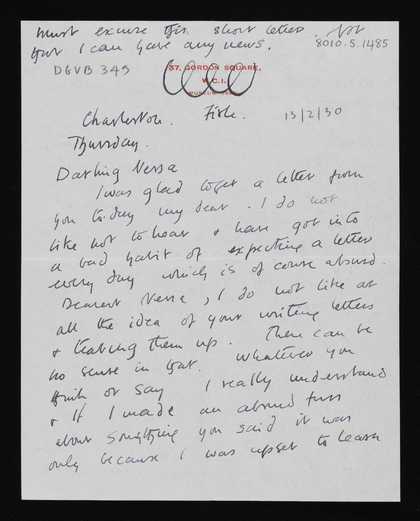 must excuse this short letter. Not
that I can have any news.
8010.5.1485
DGVB 349
37, GORDON SQUARE,
W.C.1.
Charleston. Firle. 13/2/30
Thursday.
Darling Nessa
I was glad to get a letter from
you to-day my dear. I do not
like not to hear & have got into
a bad habit of expecting a letter
every day which is of course absurd.
Dearest Nessa, I do not like at
all the idea of your writing letters
& tearing them up. There can be
no sense in that. Whatever you
think or say I really understand
& if I made an absurd fuss
about something you said it was
only because I was upset to learn